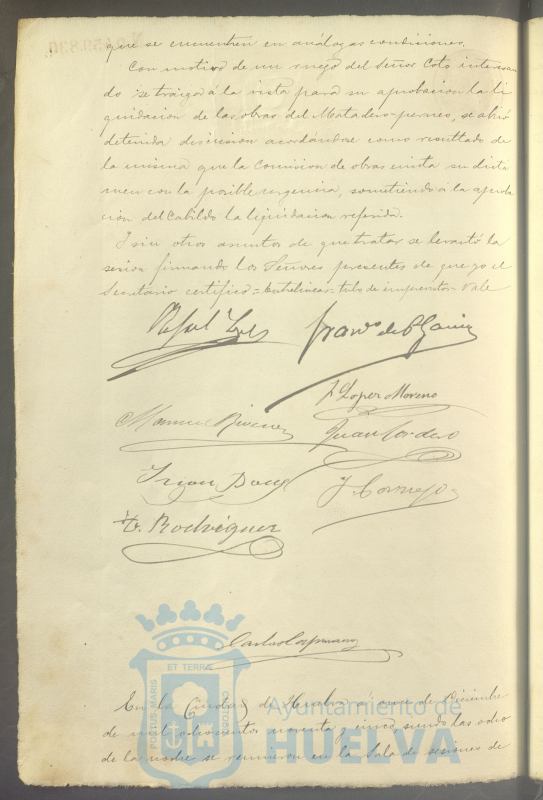 que se encuentren en análogas condiciones.
Con motivo de un ruego del Señor Coto interesan
do se traiga á la vista para su aprobacion la li
quidacion de las obras del Matadero-perneo, se abrió
detenida discusion acordándose como resultado de
la misma que la Comision de obras emita su dicta
men con la posible urgencia, sometiendo á la aproba
ción del Cabildo la liquidacion referida.
Y sin otros asuntos de que tratar se levantó la
sesion firmando los Señores presentes de que yo el
Secretario certifico = Entrelineas = Vale
Rafael
Franco de P. García
J. Lopez Moreno
Manuel
Juan Cordero
J. Cornejo
Rodriguez
Carlos
ET TERRÆ
PORTUS MARIS
En la Ciudad de Huelva á once de Diciembre
Ayuntamiento de
de mil ochocientos noventa y cinco, siendo las ocho
HUELVA
de la noche se reunieron en la Sala de sesiones de